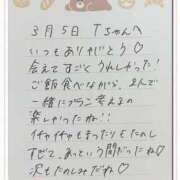 3月5日 Tちゃんへ
いつもありがとう♡
会えてすごくうれしかった!
ご飯食べながら、2人で
一緒にプラン考えるの
楽しかったね!!
イチャイチャもまったりもたのしすぎて、
あっという間だったね♡
次もたのしみだね♪